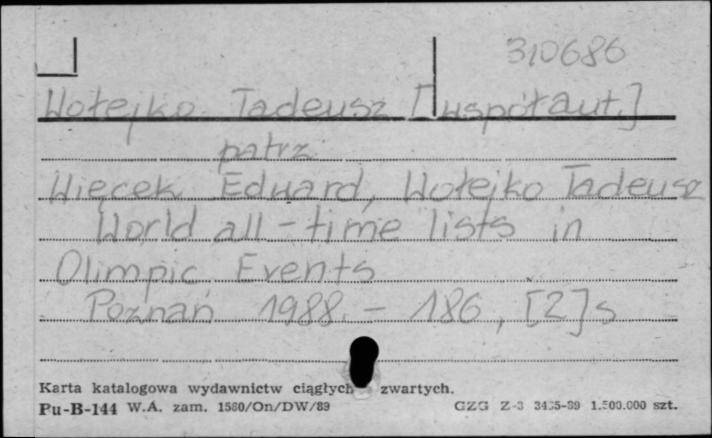 310686
Wołejko Tadeusz [współaut.]
patrz
Więcek Eduard, Wołejko Tadeusz
World all-time lists in
Olimpic Events
Poznań 1988. - 186, [2]s
Karta katalogowa wydawnictw ciągłych zwartych.
Pu-B-144 W.A. zam. 1580/On/DW/89 GZG Z-3 1.500.000 szt.